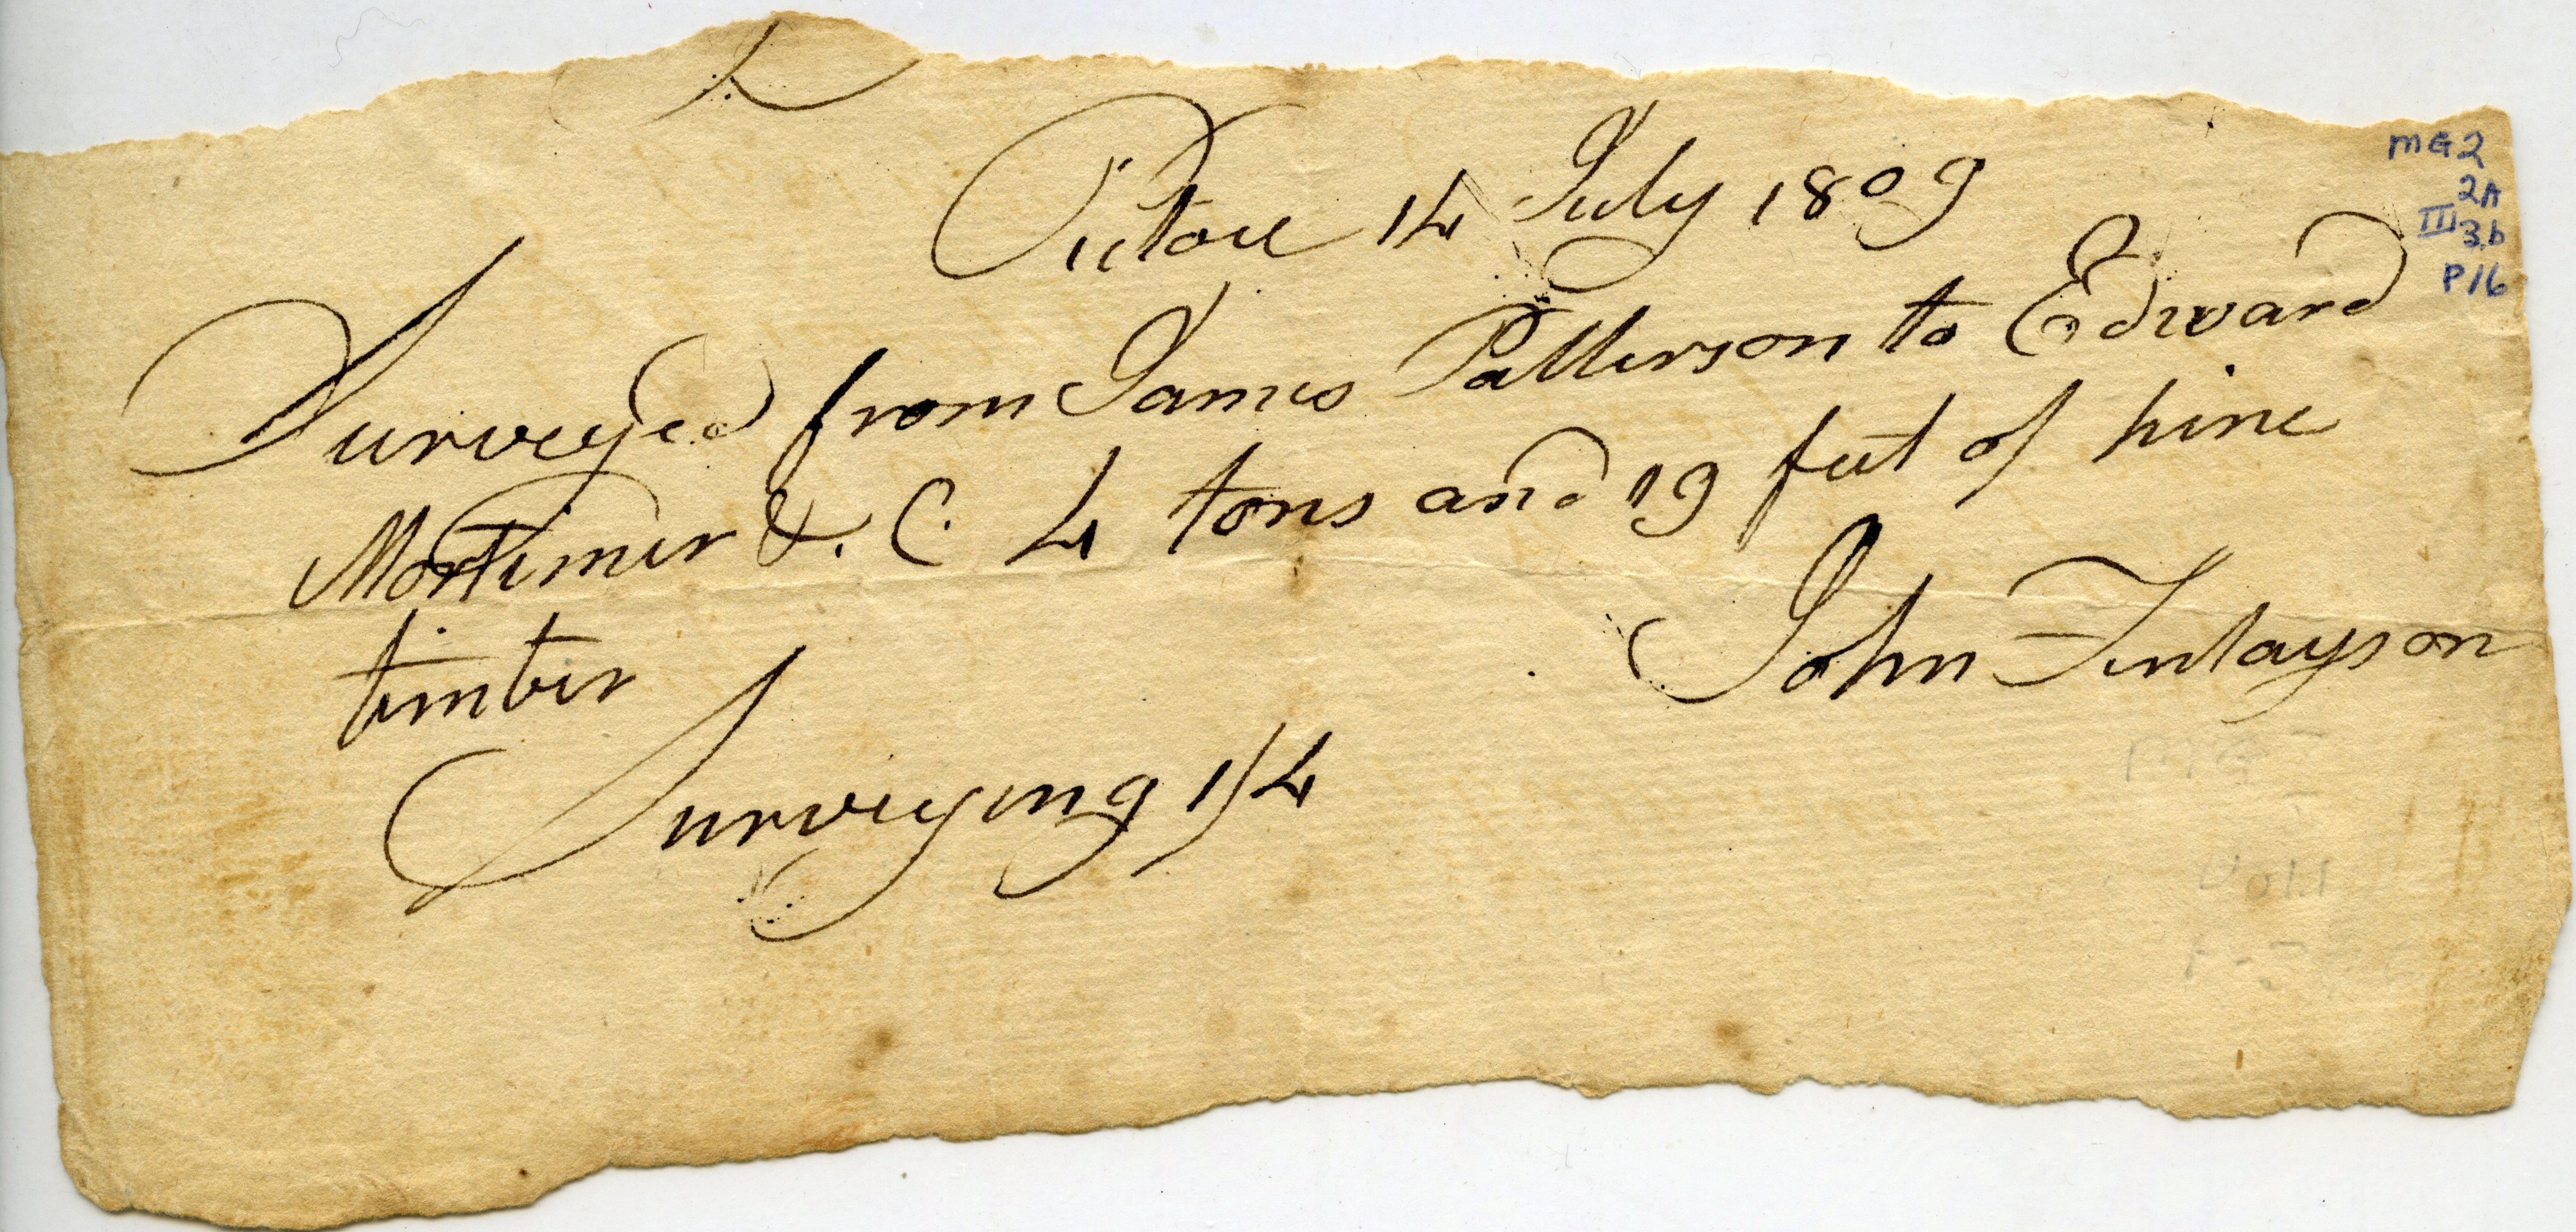 Pictou 14 July 1809
Surveyed from James Patterson to Edward
Mortimer &. C. 4 tons and 19 feet of pine
timber
John Finlayson
Surveying 1/4
MG2
2A
III
3,b
P16
MG
Vol.1